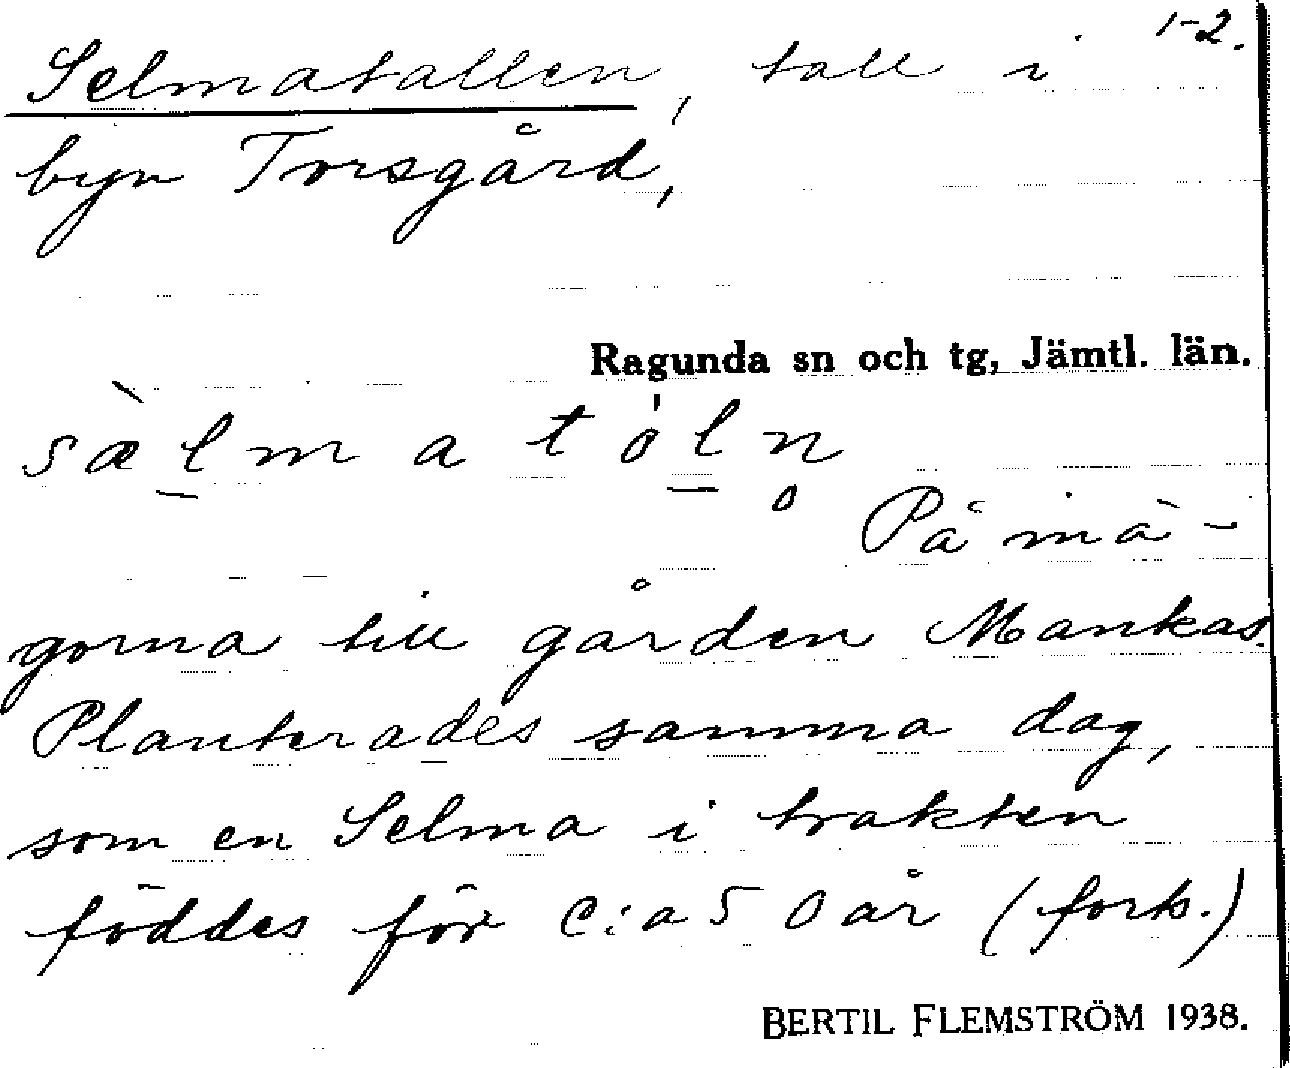 1-2.
Selmatallen, tall i
byn Torsgård,
Ragunda sn och tg, Jämtl. län.
sæ̀l̠m a tól̠n̥
På mä-
gorna till gården Mankas.
Planterades samma dag,
som en Selma i trakten
föddes för c:a 50 år (forts.)
BERTIL FLEMSTRÖM 1938.